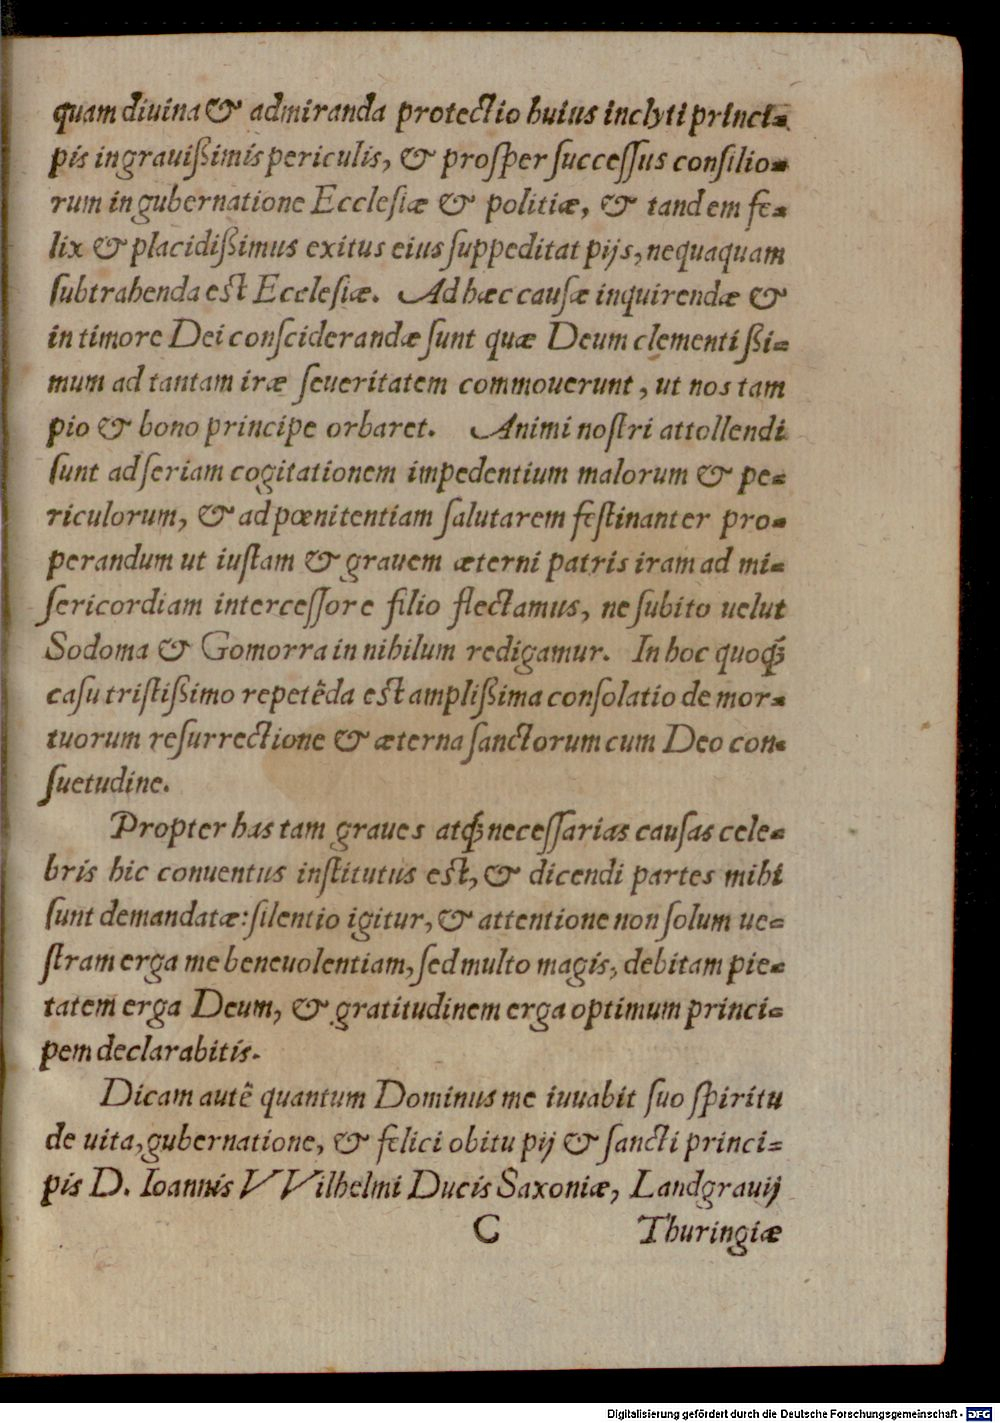 quam diuina & admiranda protectio huius inclyti princi-
pis in grauißimis periculis, & prosper successus consilio-
rum in gubernatione Ecclesiæ & politiæ, & tandem fe-
lix & placidißimus exitus eius suppeditat pijs, nequaquam
subtrahenda est Ecclesiæ. Ad hæc causæ inquirendæ &
in timore Dei consciderandæ sunt quæ Deum clementißi-
mum ad tantam iræ seueritatem commouerunt, ut nos tam
pio & bono principe orbaret. Animi nostri attollendi
sunt ad seriam cogitationem impedentium malorum & pe-
riculorum, & ad pœnitentiam salutarem festinanter pro-
perandum ut iustam & grauem æterni patris iram ad mi-
sericordiam intercessore filio flectamus, ne subito uelut
Sodoma & Gomorra in nihilum redigamur. In hoc quoq̃
casu tristißimo repetēda est amplißima consolatio de mor-
tuorum resurrectione & æterna sanctorum cum Deo con-
suetudine.
Propter has tam graues atq̃ necessarias causas cele-
bris hic conuentus institutus est, & dicendi partes mihi
sunt demandatæ: silentio igitur, & attentione non solum ue-
stram erga me beneuolentiam, sed multo magis, debitam pie-
tatem erga Deum, & gratitudinem erga optimum princi-
pem declarabitis.
Dicam autē quantum Dominus me iuuabit suo spiritu
de uita, gubernatione, & felici obitu pij & sancti princi-
pis D. Ioannis VVilhelmi Ducis Saxoniæ, Landgrauij
C Thuringiæ
Digitalisierung gefördert durch die Deutsche Forschungsgemeinschaft - DFG